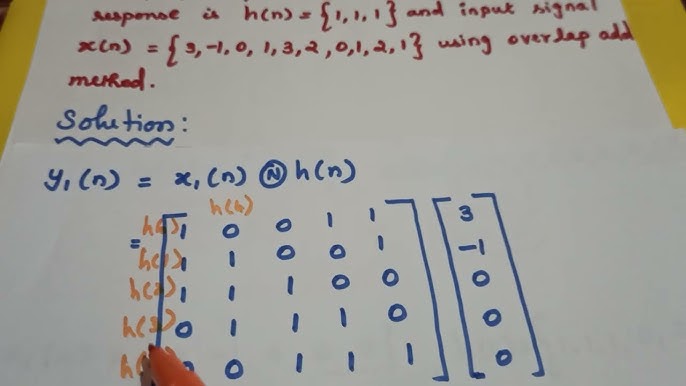 response is h(n) = {1, 1, 1} and input signal
x(n) = {3, -1, 0, 1, 3, 2, 0, 1, 2, 1} using overlap add
method.
Solution:
y₁(n) = x₁(n) Ⓝ h(n)
h(n)
= 1 0 0 1 1 3
h(1) 1 1 0 0 1 -1
h(2) 1 1 1 0 0 0
h(3) 0 1 1 1 0 0
0 1 1 1 0